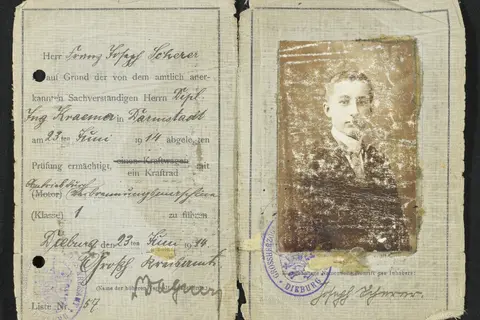 Herr Franz Joseph Scherer
auf Grund der von dem amtlich aner-
kannten Sachverständigen Herrn Dipl.
Ing Kraemer in Darmstadt
am 23ten Juni 1914 abgelegten
Prüfung ermächtigt, einen Kraftwagen mit
ein Kraftrad
Antrieb durch
(Motor) Verbrennungsmaschine
(Klasse) 1 zu führen
Dieburg den 23ten Juni 1914.
Großh Kreisamt.
(Name der höheren
Wagner
Liste Nr. 57
GROSSHERZ
DIEBURG
Joseph Scherer